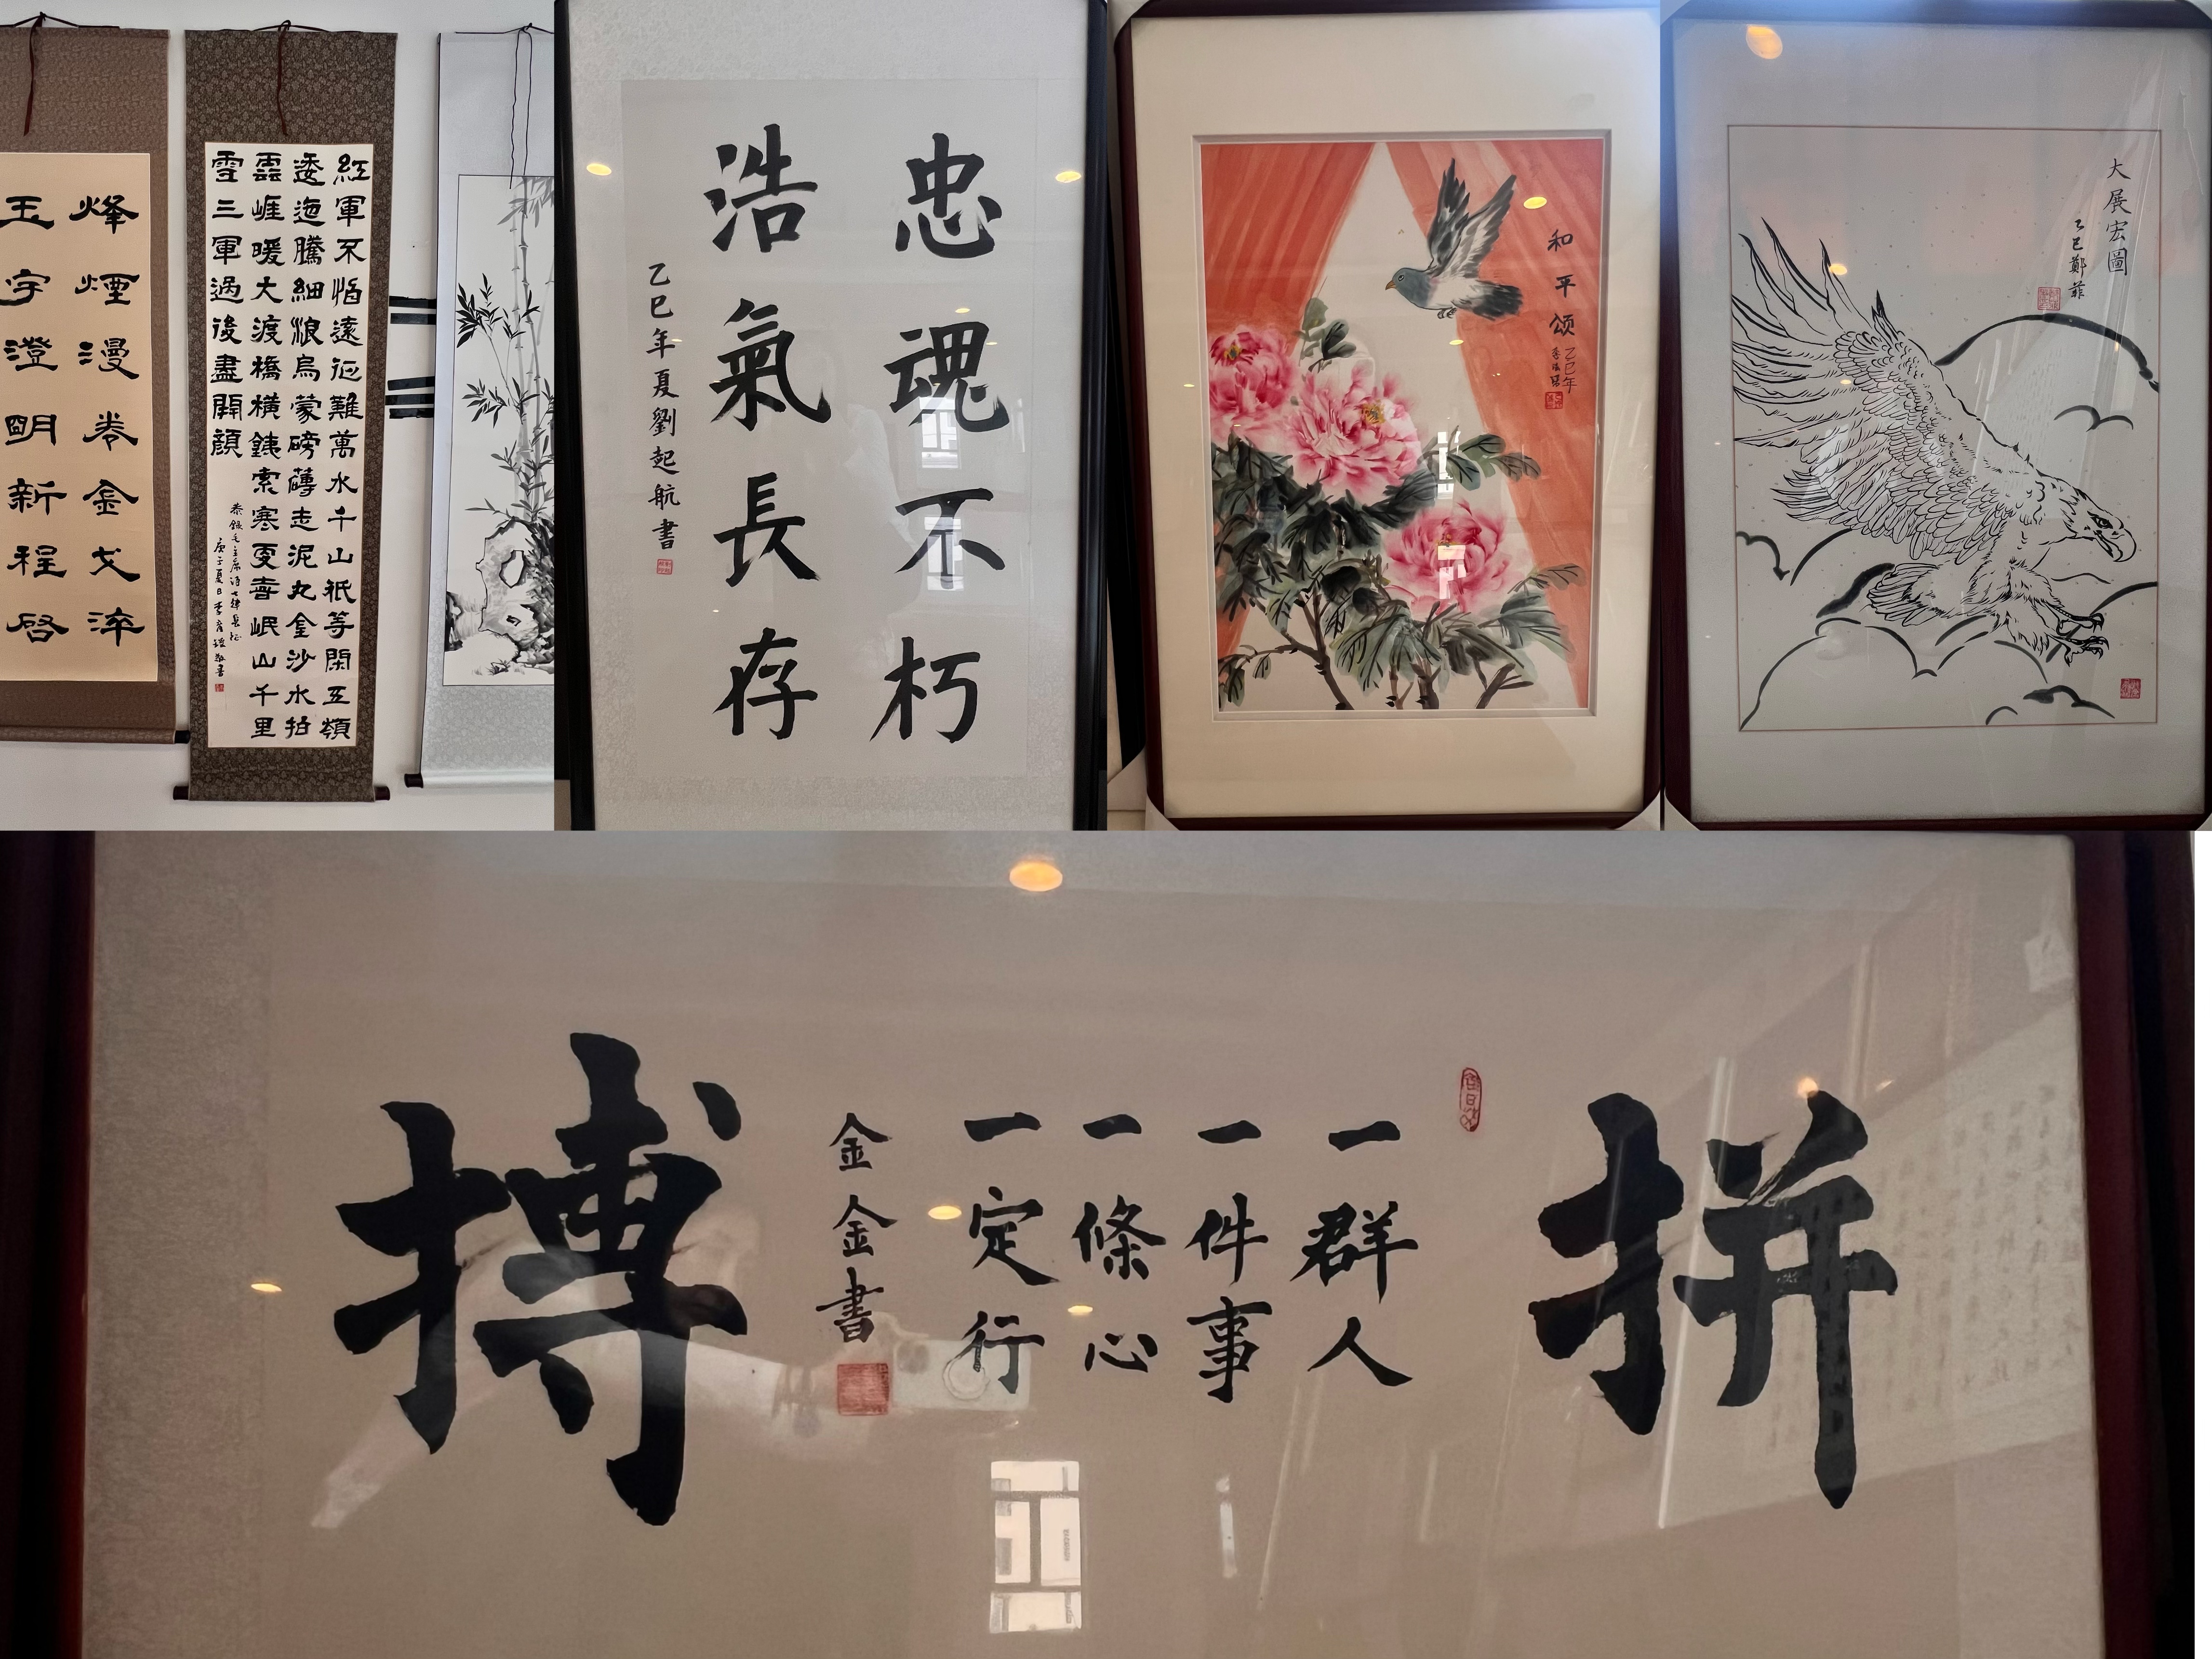 烽煙漫卷金戈淬
玉宇澄明新程啓
紅軍不怕遠征難萬水千山祇等閑五嶺
逶迤騰細浪烏蒙磅礴走泥丸金沙水拍
雲崖暖大渡橋橫鐵索寒更喜岷山千里
雪三軍過後盡開顏
忠魂不朽
浩氣長存
乙巳年夏劉起航書
和平颂
乙巳年
大展宏圖
乙巳鄭菲
拼
一群人
一件事
一條心
一定行
金金書
搏